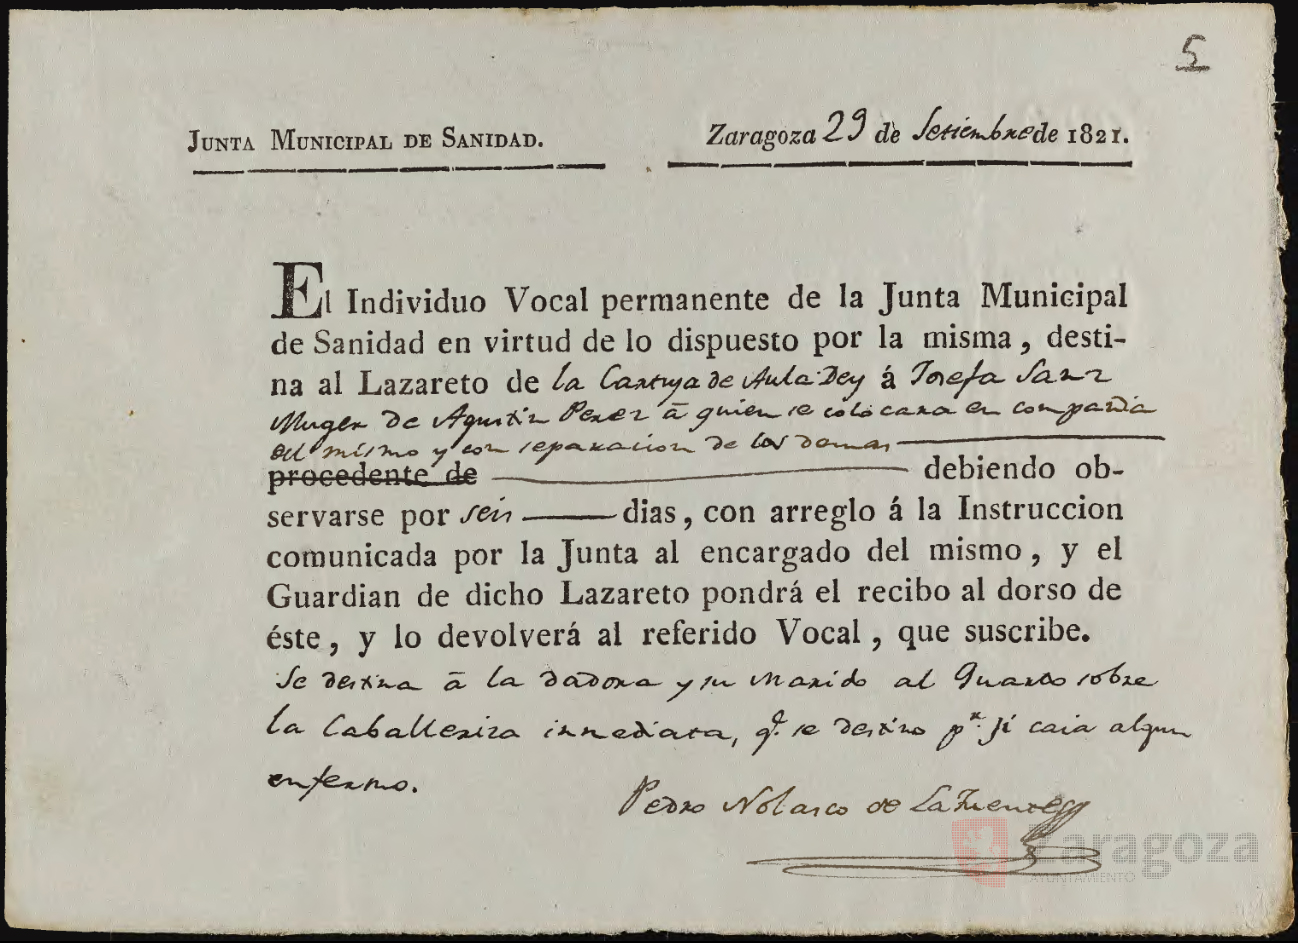 5
JUNTA MUNICIPAL DE SANIDAD.
Zaragoza 29 de Setiembre de 1821.
El Individuo Vocal permanente de la Junta Municipal
de Sanidad en virtud de lo dispuesto por la misma, desti-
na al Lazareto de la Cartuja de Aula Dey á Josefa Sanz
Muger de Agustin Perez á quien se colocara en compañia
del mismo y con separacion de los demas
procedente de debiendo ob-
servarse por seis dias, con arreglo á la Instruccion
comunicada por la Junta al encargado del mismo, y el
Guardian de dicho Lazareto pondrá el recibo al dorso de
éste, y lo devolverá al referido Vocal, que suscribe.
Se destina á la dadora y su marido al Quarto sobre
la Caballeriza inmediata, q.e se destino p.r si caia algun
enfermo.
Pedro Nolasco de LaFuente
Zaragoza
AYUNTAMIENTO